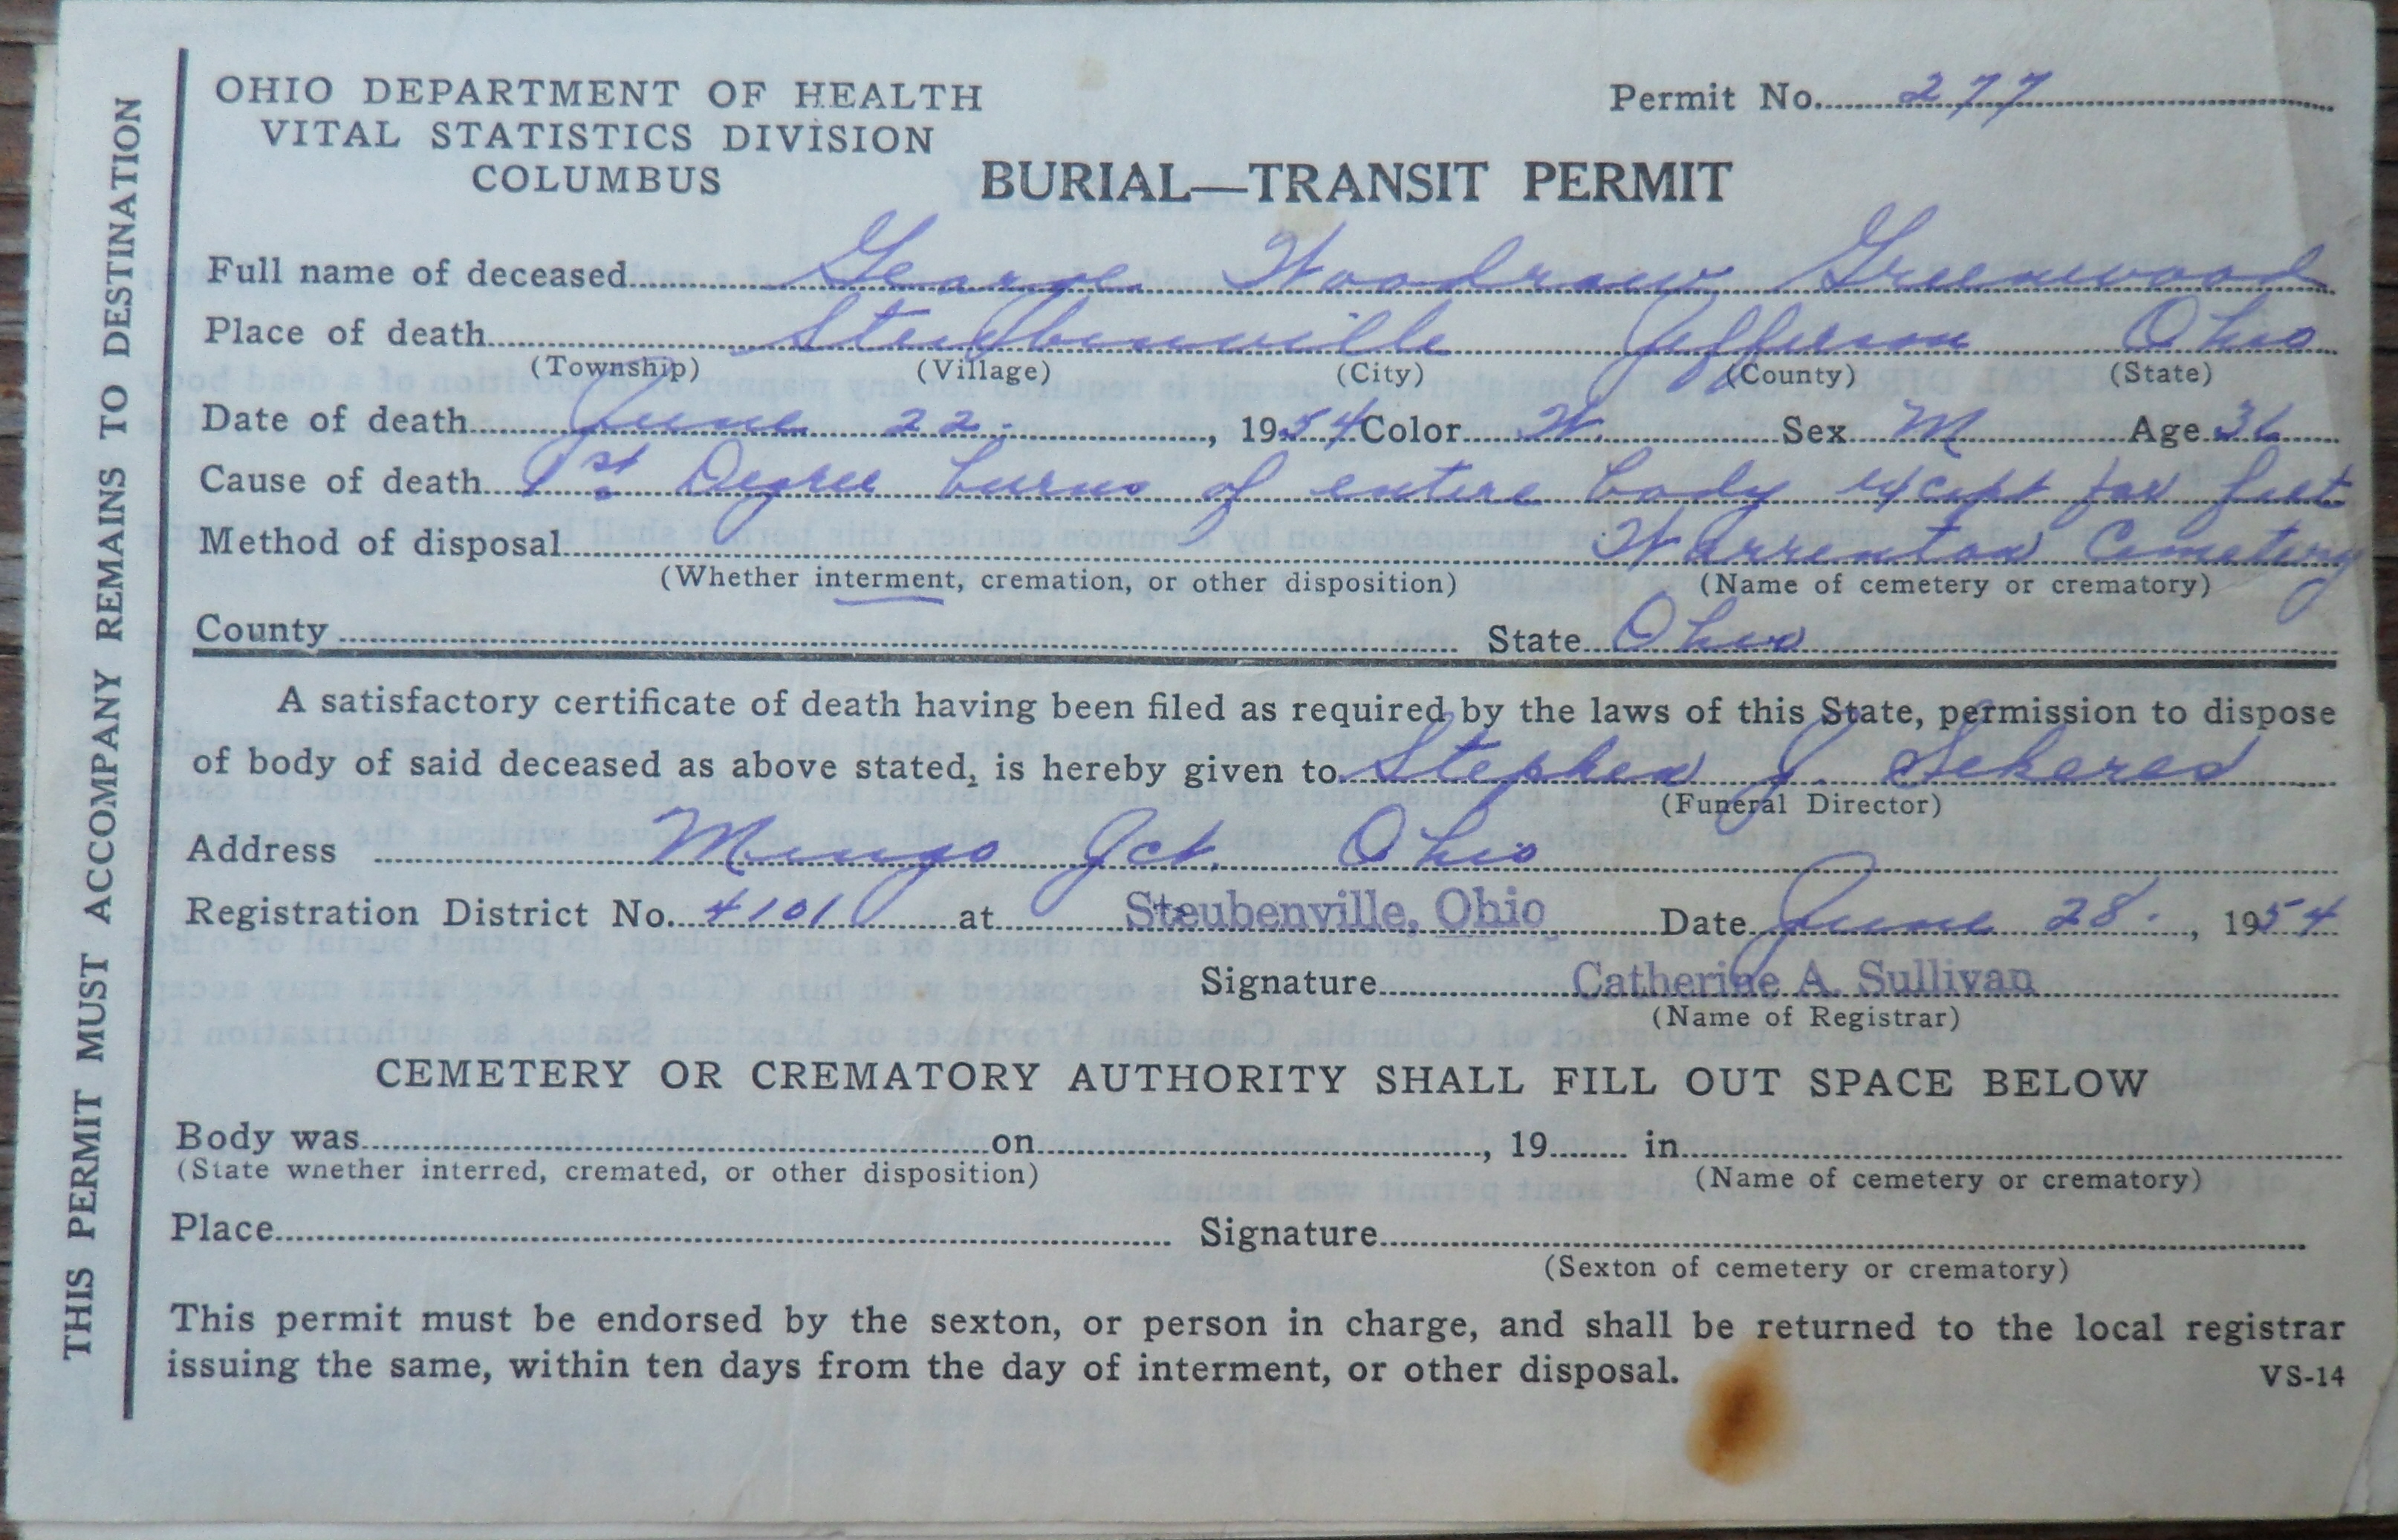 OHIO DEPARTMENT OF HEALTH
VITAL STATISTICS DIVISION
COLUMBUS
Permit No. 277
BURIAL—TRANSIT PERMIT
Full name of deceased George Woodrow Greenwood
Place of death Steubenville Jefferson Ohio
(Township) (Village) (City) (County) (State)
Date of death June 22, 1954 Color W. Sex M Age 36
Cause of death 1st Degree burns of entire body except for feet
Method of disposal Warrenton Cemetery
(Whether interment, cremation, or other disposition) (Name of cemetery or crematory)
County State Ohio
A satisfactory certificate of death having been filed as required by the laws of this State, permission to dispose
of body of said deceased as above stated, is hereby given to Stephen J.
(Funeral Director)
Address Mingo Jct. Ohio
Registration District No. 4101 at Steubenville, Ohio Date June 28, 1954
Signature Catherine A. Sullivan
(Name of Registrar)
CEMETERY OR CREMATORY AUTHORITY SHALL FILL OUT SPACE BELOW
Body was on , 19 in
(State whether interred, cremated, or other disposition) (Name of cemetery or crematory)
Place Signature
(Sexton of cemetery or crematory)
This permit must be endorsed by the sexton, or person in charge, and shall be returned to the local registrar
issuing the same, within ten days from the day of interment, or other disposal.
VS-14
THIS PERMIT MUST ACCOMPANY REMAINS TO DESTINATION